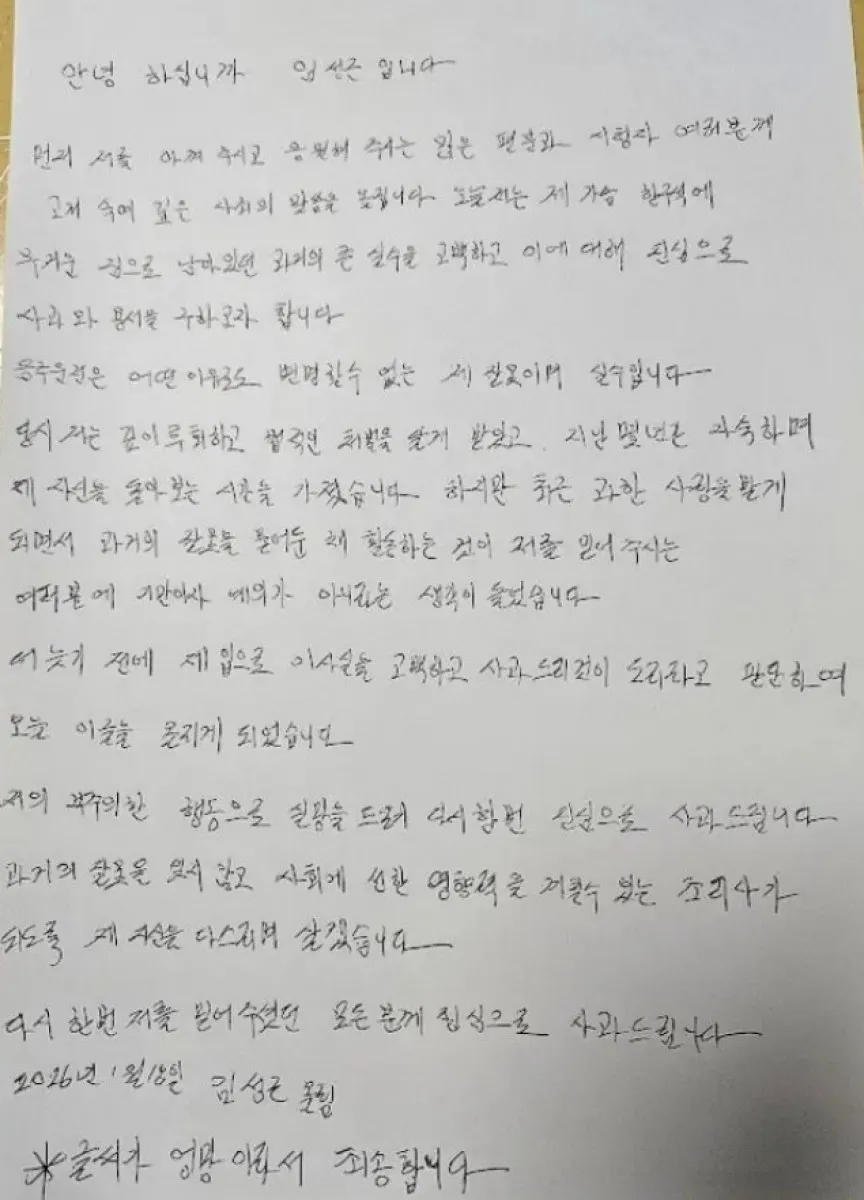 안녕 하십니까 임성근 입니다
먼저 저를 아껴 주시고 응원해 주시는 많은 팬분과 시청자 여러분께
고개 숙여 깊은 사죄의 말씀을 올립니다 오늘 저는 제 가슴 한구석에
무거운 짐으로 남아있던 과거의 큰 실수를 고백하고 이에 대해 진심으로
사과와 용서를 구하고자 합니다
음주운전은 어떤 이유로도 변명할수 없는 제 잘못이며 실수입니다
당시 저는 깊이 후회하고 법적인 처벌을 달게 받았고 . 지난 몇년간 자숙하며
제 자신을 돌아보는 시간을 가졌습니다 하지만 최근 과한 사랑을 받게
되면서 과거의 잘못을 묻어둔 채 활동하는 것이 저를 믿어 주시는
여러분에 기만이자 예의가 아니라는 생각이 들었습니다
더 늦기 전에 제 입으로 이사실을 고백하고 사과드리것이 도리라고 판단하여
오늘 이글을 올리게 되었습니다
저의 부주의한 행동으로 실망을 드려 다시한번 진심으로 사과드립니다
과거의 잘못을 잊지 않고 사회에 선한 영향력을 끼칠수 있는 조리사가
되도록 제 자신을 다스리며 살겠습니다
다시 한번 저를 믿어주셨던 모든 분께 진심으로 사과드립니다
2026년 1월 18일 임성근 올림
※ 글씨가 엉망이라서 죄송합니다